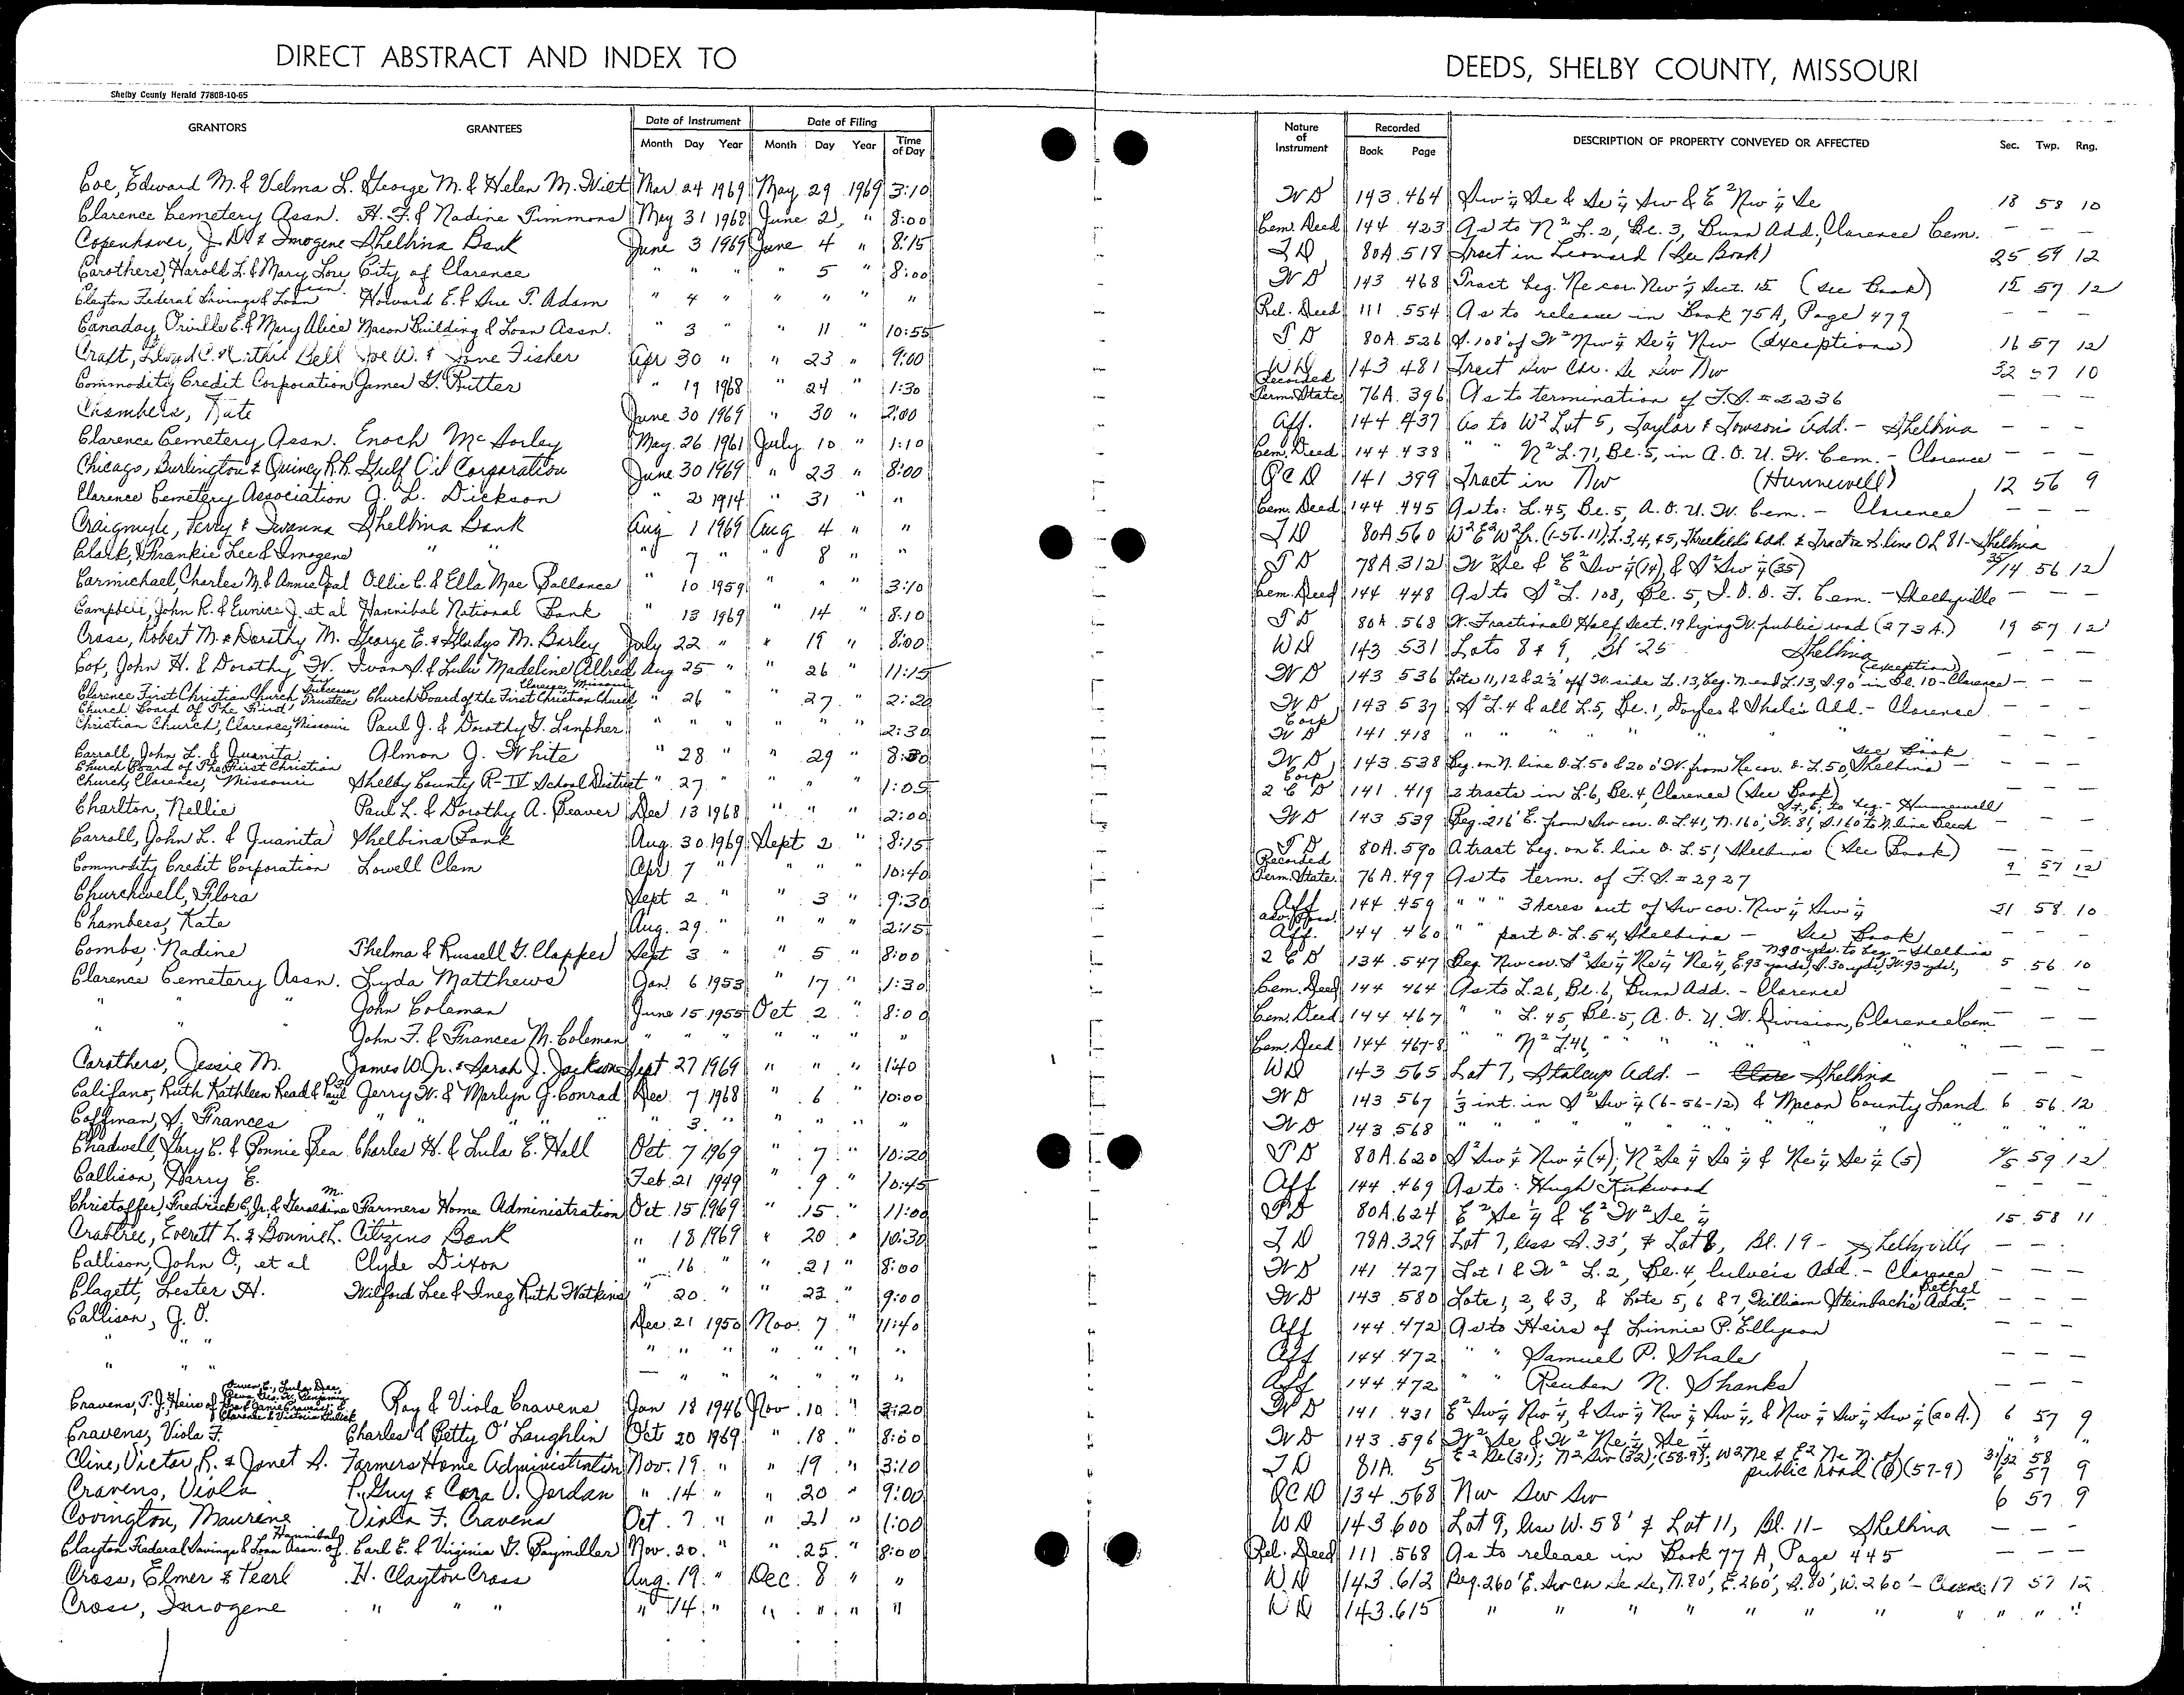 DIRECT ABSTRACT AND INDEX TO
Shelby County Herald 7780B-10-65
GRANTORS GRANTEES Date of Instrument Date of Filing
Month Day Year Month Day Year Time of Day
Coe, Edward M. & Velma L. George M. & Helen M. Wilt Mar 24 1969 May 29 1969 3:10
Clarence Cemetery Assn. H. F. & Nadine Timmons May 31 1968 June 2, " 8:00
Copenhaver, J. D. & Imogene Shelbina Bank June 3 1969 June 4 " 8:15
Carothers, Harold L. & Mary Lou City of Clarence " " " " 5 " 8:00
Clayton Federal Savings & Loan Assn. Howard E. & Sue T. Adam " 4 " " " " "
Canaday, Orville E. & Mary Alice Macon Building & Loan Assn. " 3 " " 11 " 10:55
Craft, Lloyd C. & Bell Joe W. & Jane Fisher Apr 30 " " 23 " 9:00
Commodity Credit Corporation James G. Rutter " 19 1968 " 24 " 1:30
Chambers, Kate June 30 1969 " 30 " 2:00
Clarence Cemetery Assn. Enoch McSorley May 26 1961 July 10 " 1:10
Chicago, Burlington & Quincy R.R. Gulf Oil Corporation June 30 1969 " 23 " 8:00
Clarence Cemetery Association J. L. Dickson " 2 1914 " 31 " "
Craigmyle, Perry & Iwanna Shelbina Bank Aug 1 1969 Aug 4 " "
Clark, Frankie Lee & Imogene " " " 7 " " 8 " "
Carmichael, Charles M. & Annie Opal Ollie C. & Ella Mae Ballance " 10 1959 " " " 3:10
Campbell, John R. & Eunice J. et al Hannibal National Bank " 13 1969 " 14 " 8:10
Cross, Robert M. & Dorothy M. George E. & Gladys M. Burley July 22 " " 19 " 8:00
Cox, John H. & Dorothy W. Ivan S. & Lulu Madeline Allred Aug 25 " " 26 " 11:15
Clarence First Christian Church Trustees Church Board of the First Christian Church Clarence, Missouri " 26 " " 27 " 2:20
Church Board of The First
Christian Church, Clarence, Missouri Paul J. & Dorothy G. Limpher " " " " " " 2:30
Carroll, John L. & Juanita Almon J. White " 28 " " 29 " 8:30
Church Board of The First Christian
Church, Clarence, Missouri Shelby County R-IV School District " 27 " " " " 1:05
Charlton, Nellie Paul L. & Dorothy A. Beaver Dec 13 1968 " " " 2:00
Carroll, John L. & Juanita Shelbina Bank Aug. 30 1969 Sept 2 " 8:15
Commodity Credit Corporation Lowell Clem Apr. 7 " " " " 10:40
Churchwell, Flora Sept 2 " " 3 " 9:30
Chambers, Kate Aug. 29 " " " " 2:15
Combs, Nadine Thelma & Russell G. Clapper Sept 3 " " 5 " 8:00
Clarence Cemetery Assn. Lyda Matthews Jan. 6 1953 " 17 " 1:30
" " John Coleman June 15 1955 Oct 2 " 8:00
" " John F. & Frances M. Coleman " " " " " " "
Carothers, Jessie M. James W. Jr. & Sarah J. Jackson Sept 27 1969 " " " 1:40
Califano, Ruth Kathleen Read & Paul Jerry W. & Marlyn J. Conrad Dec. 7 1968 " 6 " 10:00
Coffman, S. Frances " " " " " 3 " " " " "
Chadwell, Gary C. & Connie Rea Charles H. & Lula E. Hall Oct. 7 1969 " 7 " 10:20
Callison, Harry E. Feb. 21 1949 " 9 " 10:45
Christoffer, Fredrick C. Jr. & Geraldine M. Farmers Home Administration Oct. 15 1969 " 15 " 11:00
Crabtree, Everett L. & Bonnie L. Citizens Bank " 18 1969 " 20 " 10:30
Callison, John O., et al Clyde Dixon " 16 " " 21 " 8:00
Clagett, Lester H. Wilford Lee & Inez Ruth Watkins " 20 " " 22 " 9:00
Callison, J. O. Dec. 21 1950 Nov. 7 " 11:40
" " " " " " " " " "
" " " — " " " " " "
Cravens, T. J. Heirs of Roy & Viola Cravens Jan 18 1946 Nov. 10 " 3:20
Cravens, Viola F. Charles & Betty O'Laughlin Oct 20 1969 " 18 " 8:00
Cline, Victor R. & Janet S. Farmers Home Administration Nov. 19 " " 19 " 3:10
Cravens, Viola P. Guy & Cora V. Jordan " 14 " " 20 " 9:00
Covington, Maurene Viola F. Cravens Oct. 7 " " 21 " 1:00
Clayton Federal Savings & Loan Assn. of Hannibal Earl E. & Virginia G. Baymiller Nov. 20. " " 25 " 8:00
Cross, Elmer & Pearl H. Clayton Cross Aug. 19 " Dec. 8 " "
Cross, Imogene " " " " 14 " " " " "
DEEDS, SHELBY COUNTY, MISSOURI
Nature of Instrument Recorded DESCRIPTION OF PROPERTY CONVEYED OR AFFECTED Sec. Twp. Rng.
Book Page
WD 143 464 Sw ¼ Se & Se ¼ Sw & E² Nw ¼ Se 18 58 10
Cem. Deed 144 423 As to N² L. 2, Bl. 3, Bunn Add., Clarence Cem. — — —
TD 80A 518 Tract in Leonard (See Book) 25 59 12
WD 143 468 Tract beg. Ne cor. Nw ¼ Sect. 15 (See Book) 15 57 12
Rel. Deed 111 554 As to release in Book 75A, Page 479 — — —
TD 80A 526 S. 108' of W² Nw ¼ Se ¼ Nw (exceptions) 16 57 12
WD 143 481 Tract Sw Cor. Se Sw Nw 32 57 10
Recorded Term. State. 76A 396 As to termination of F.S. # 2236 — — —
Aff. 144 437 As to W² Lot 5, Taylor & Towson's Add. - Shelbina — — —
Cem. Deed 144 438 " " N² L. 71, Bl. 5, in A. O. U. W. Cem. - Clarence — — —
QCD 141 399 Tract in Nw (Hunnewell) 12 56 9
Cem. Deed 144 445 As to: L. 45, Bl. 5, A. O. U. W. Cem. - Clarence — — —
TD 80A 560 W² E² W² fr. (1-56-11); L. 3, 4, & 5, Threlkeld's Add. & Tract in S. line OL 81 - Shelbina
TD 78A 312 W² Se & E² Sw ¼ (14), & S² Sw ¼ (35) 35/14 56 12
Cem. Deed 144 448 As to S² L. 108, Bl. 5, I. O. O. F. Cem. - Shelbyville — — —
TD 80A 568 W. Fractional Half Sect. 19 lying W. public road (273 A.) 19 57 12
WD 143 531 Lots 8 & 9, Bl 25 Shelbina — — —
WD 143 536 Lots 11, 12 & 2½' off W. side L. 13, beg. N. end L. 13, S. 90' in Bl. 10 - Clarence (exception) — — —
WD 143 537 S² L. 4 & all L. 5, Bl. 1, Doyle & Shale's Add. - Clarence — — —
Corp WD 141 418 " " " " " "
WD 143 538 Beg. on N. line O. L. 50 & 200' W. from Ne cor. O. L. 50, Shelbina See Book — — —
Corp 2 C D 141 419 2 tracts in L. 6, Bl. 4, Clarence (See Book) — — —
WD 143 539 Beg. 216' E. from Sw cor. O. L. 41, N. 160', W. 81', S. 160' to N. line Beech St., E. to beg. - Hunnewell — — —
TD 80A 590 A tract beg. on E. line O. L. 51, Shelbina (See Book) — — —
Recorded Term. State. 76A 499 As to term. of F.S. # 2927 9 57 12
Aff 144 459 " " " 3 Acres out of Sw cor. Nw ¼ Sw ¼ 21 58 10
Aff. 144 460 " " part O. L. 54, Shelbina - See Book — — —
2 C D 134 547 Beg. Nw cor. S² Se ¼ Ne ¼ Ne ¼, E. 93 yards, S. 30 yds, W. 93 yds, N 30 yds. to beg. - Shelbina 5 56 10
Cem. Deed 144 464 As to L. 26, Bl. 6, Bunn Add. - Clarence — — —
Cem. Deed 144 467 " " L. 45, Bl. 5, A. O. U. W. Division, Clarence Cem — — —
Cem. Deed 144 467-8 " " N² L. 46, " " " " " " — — —
WD 143 565 Lot 7, Stalcup Add. - Shelbina — — —
WD 143 567 ⅓ int. in S² Sw ¼ (6-56-12) & Macon County Land 6 56 12
WD 143 568 " " " " " " " " " " "
TD 80A 620 S² Sw ¼ Nw ¼ (4); N² Se ¼ Se ¼ & Ne ¼ Se ¼ (5) 4/5 59 12
Aff 144 469 As to: Hugh Kirkwood — — —
TD 80A 624 E² Se ¼ & E² W² Se ¼ 15 58 11
TD 78A 329 Lot 7, less S. 33', & Lot 8, Bl. 19 - Shelbyville — — —
WD 141 427 Lot 1 & W² L. 2, Bl. 4, Culver's Add. - Clarence — — —
WD 143 580 Lots 1, 2, & 3, & Lots 5, 6 & 7, William Steinbach's Add. - Bethel — — —
Aff 144 472 As to Heirs of Linnie P. Ellyson — — —
Aff 144 472 " " Samuel P. Shale — — —
Aff 144 472 " " Reuben N. Shanks — — —
WD 141 431 E² Sw ¼ Nw ¼, & Sw ¼ Nw ¼ Sw ¼, & Nw ¼ Sw ¼ Sw ¼ (20 A.) 6 57 9
WD 143 596 W² Se & W² Ne ¼ Se ¼ " " "
TD 81A 5 E² Se (31); N² Sw (32); (58-9); W² Ne & E² Ne N. of public road (6) (57-9) 31/32 58 6 57 9
QCD 134 568 Nw Sw Sw 6 57 9
WD 143 600 Lot 9, less W. 58' & Lot 11, Bl. 11 - Shelbina — — —
Rel. Deed 111 568 As to release in Book 77A, Page 445 — — —
WD 143 612 Beg. 260' E. Sw cor Se Se, N. 80', E. 260', S. 80', W. 260' - Clarence 17 57 12
WD 143 615 " " " " " " " " " " "